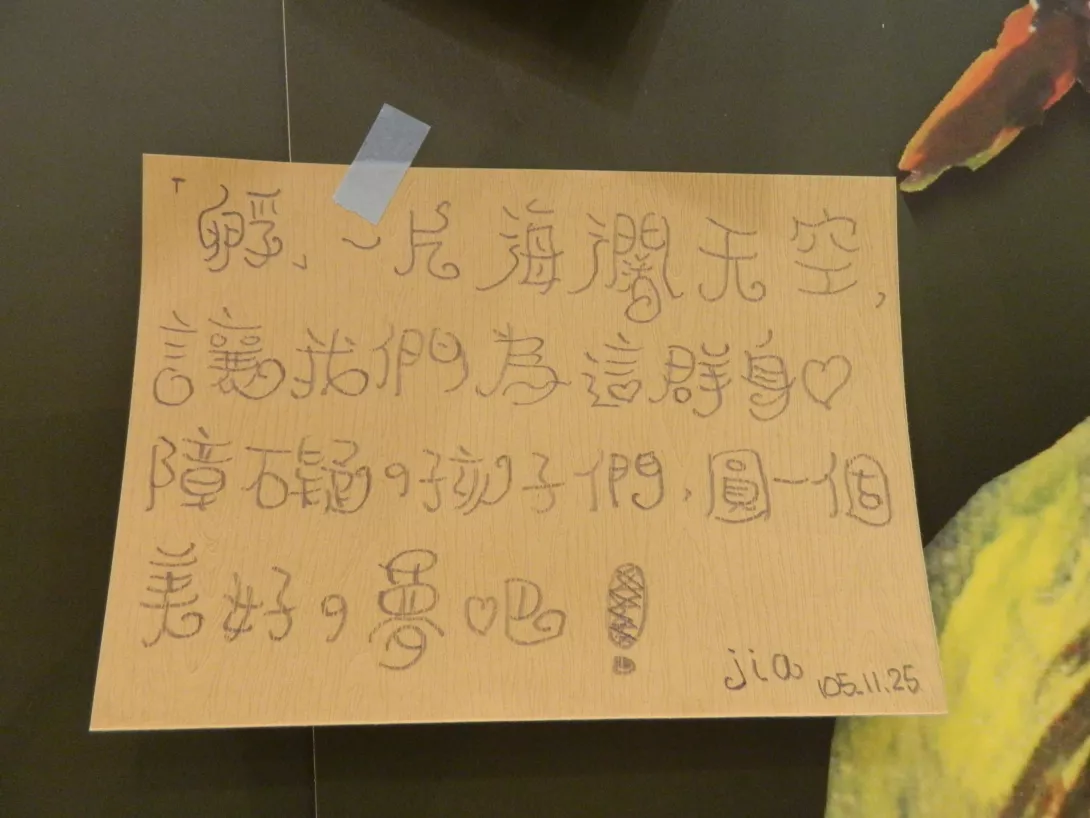 「孵」一片海濶天空,
讓我們為這群身♡
障礙の孩子們,圓一個
美好の夢♡吧!
jia 105.11.25